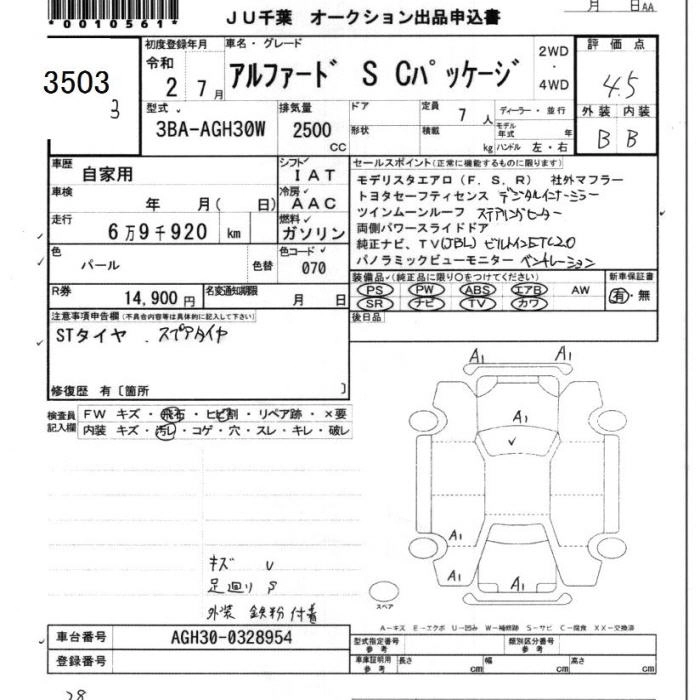 *0010561*
JU千葉 オークション出品申込書
月 日AA
3503
3
初度登録年月
令和
2 7月
車名・グレード
アルファード S Cパッケージ
2WD
・
4WD
評価点
4.5
外装 内装
B B
型式
3BA-AGH30W
排気量
2500
cc
ドア
形状
定員
7 人
積載
kg
ディーラー・並行
モデル年式 年
ハンドル 左・右
車歴
自家用
シフト
IAT
車検
年 月( 日)
冷房
AAC
走行
6万9千920 km
燃料
ガソリン
色
パール
色替
色コード
070
R券
14,900円
名変通知期限
月 日
セールスポイント(正常に機能するものに限ります)
モデリスタエアロ(F.S.R) 社外マフラー
トヨタセーフティセンス デジタルインナーミラー
ツインムーンルーフ ステアリングヒーター
両側パワースライドドア
純正ナビ、TV(JBL) ビルトインETC2.0
パノラミックビューモニター ベンチレーション
装備品(純正品に限り○をつけてください)
PS PW ABS エアB AW
SR ナビ TV カワ
新車保証書
有・無
後日品
注意事項申告欄(不具合内容等は具体的に記入して下さい)
STタイヤ . スペアタイヤ
修復歴 有〔箇所 〕
検査員
記入欄
FW キズ・飛石・ヒビ割・リペア跡・×要
内装 キズ・汚れ・コゲ・穴・スレ・キレ・破レ
A1 A1
A1
A1
A1 A1
キズ U
足廻り S
外装 鉄粉付着
スペア
A-キズ E-エクボ U-凹み W-補修跡 S-サビ C-腐食 XX-交換済
車台番号
AGH30-0328954
登録番号
型式指定番号
参考
類別区分番号
参考
車庫証明用
参考
長さ cm
幅 cm
高さ cm
28